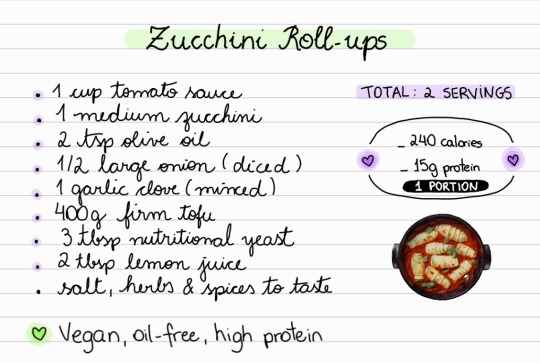 Zucchini Roll-ups
• 1 cup tomato sauce
• 1 medium zucchini
• 2 tsp olive oil
• 1/2 large onion (diced)
• 1 garlic clove (minced)
• 400g firm tofu
• 3 tbsp nutritional yeast
• 2 tbsp lemon juice
• salt, herbs & spices to taste
TOTAL: 2 SERVINGS
_ 240 calories
_ 15g protein
1 PORTION
Vegan, oil-free, high protein